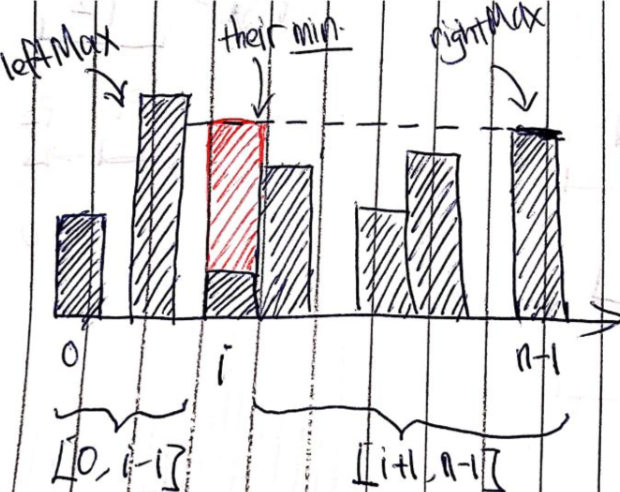 leftMax their min. rightMax
0 i n-1
[0, i-1] [i+1, n-1]